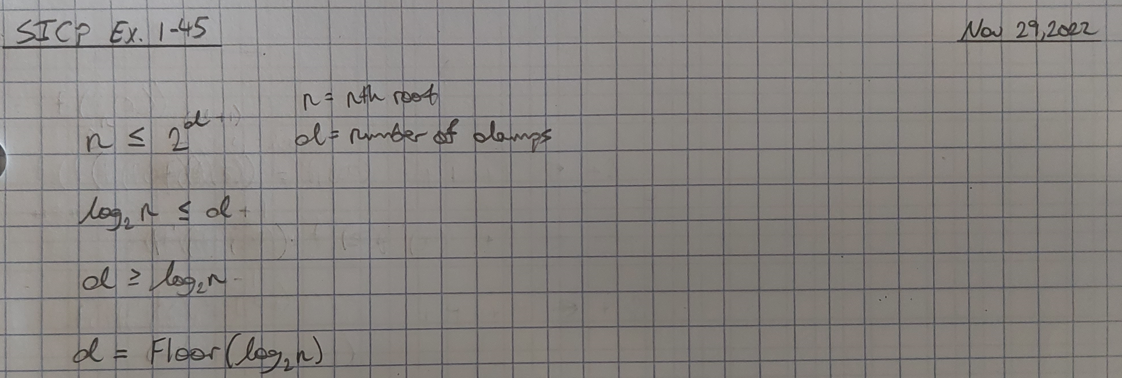 SICP Ex. 1-45
Nov 29, 2022
n = nth root
n ≤ 2^d
d = number of damps
log₂n ≤ d
d ≥ log₂n
d = Floor(log₂n)